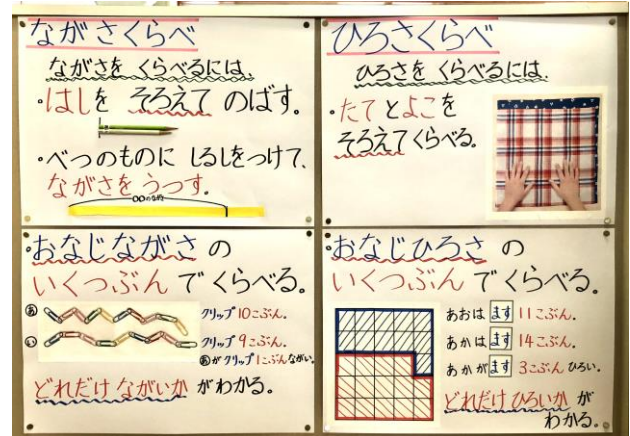 ながさくらべ
ながさを くらべるには、
・はしを そろえて のばす。
・べつのものに しるしをつけて、
ながさをうつす。
ひろさくらべ
ひろさを くらべるには、
・たてとよこを
そろえてくらべる。
・おなじながさの
いくつぶん でくらべる。
あ クリップ10こぶん。
い クリップ9こぶん。
あがクリップ1こぶんながい。
どれだけ ながいか がわかる。
・おなじひろさ の
いくつぶん でくらべる。
あおは ます 11こぶん。
あかは ます 14こぶん。
あかが ます 3こぶん ひろい。
どれだけ ひろいか が
わかる。